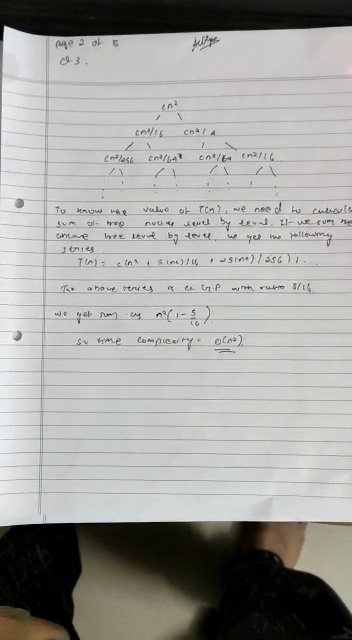 Page 2 of 5
Q 3.
cn²
cn²/16 cn²/4
cn²/256 cn²/64 cn²/64 cn²/16
To know the value of T(n), we need to calculate
sum of tree nodes level by level. If we sum the
above tree level by level, we get the following
series
T(n) = c(n² + 5(n²)/16 + 25(n²)/256) + .
The above series is a G.P with ratio 5/16.
we get sum as n²(1 - 5/16)
So time complexity = O(n²)